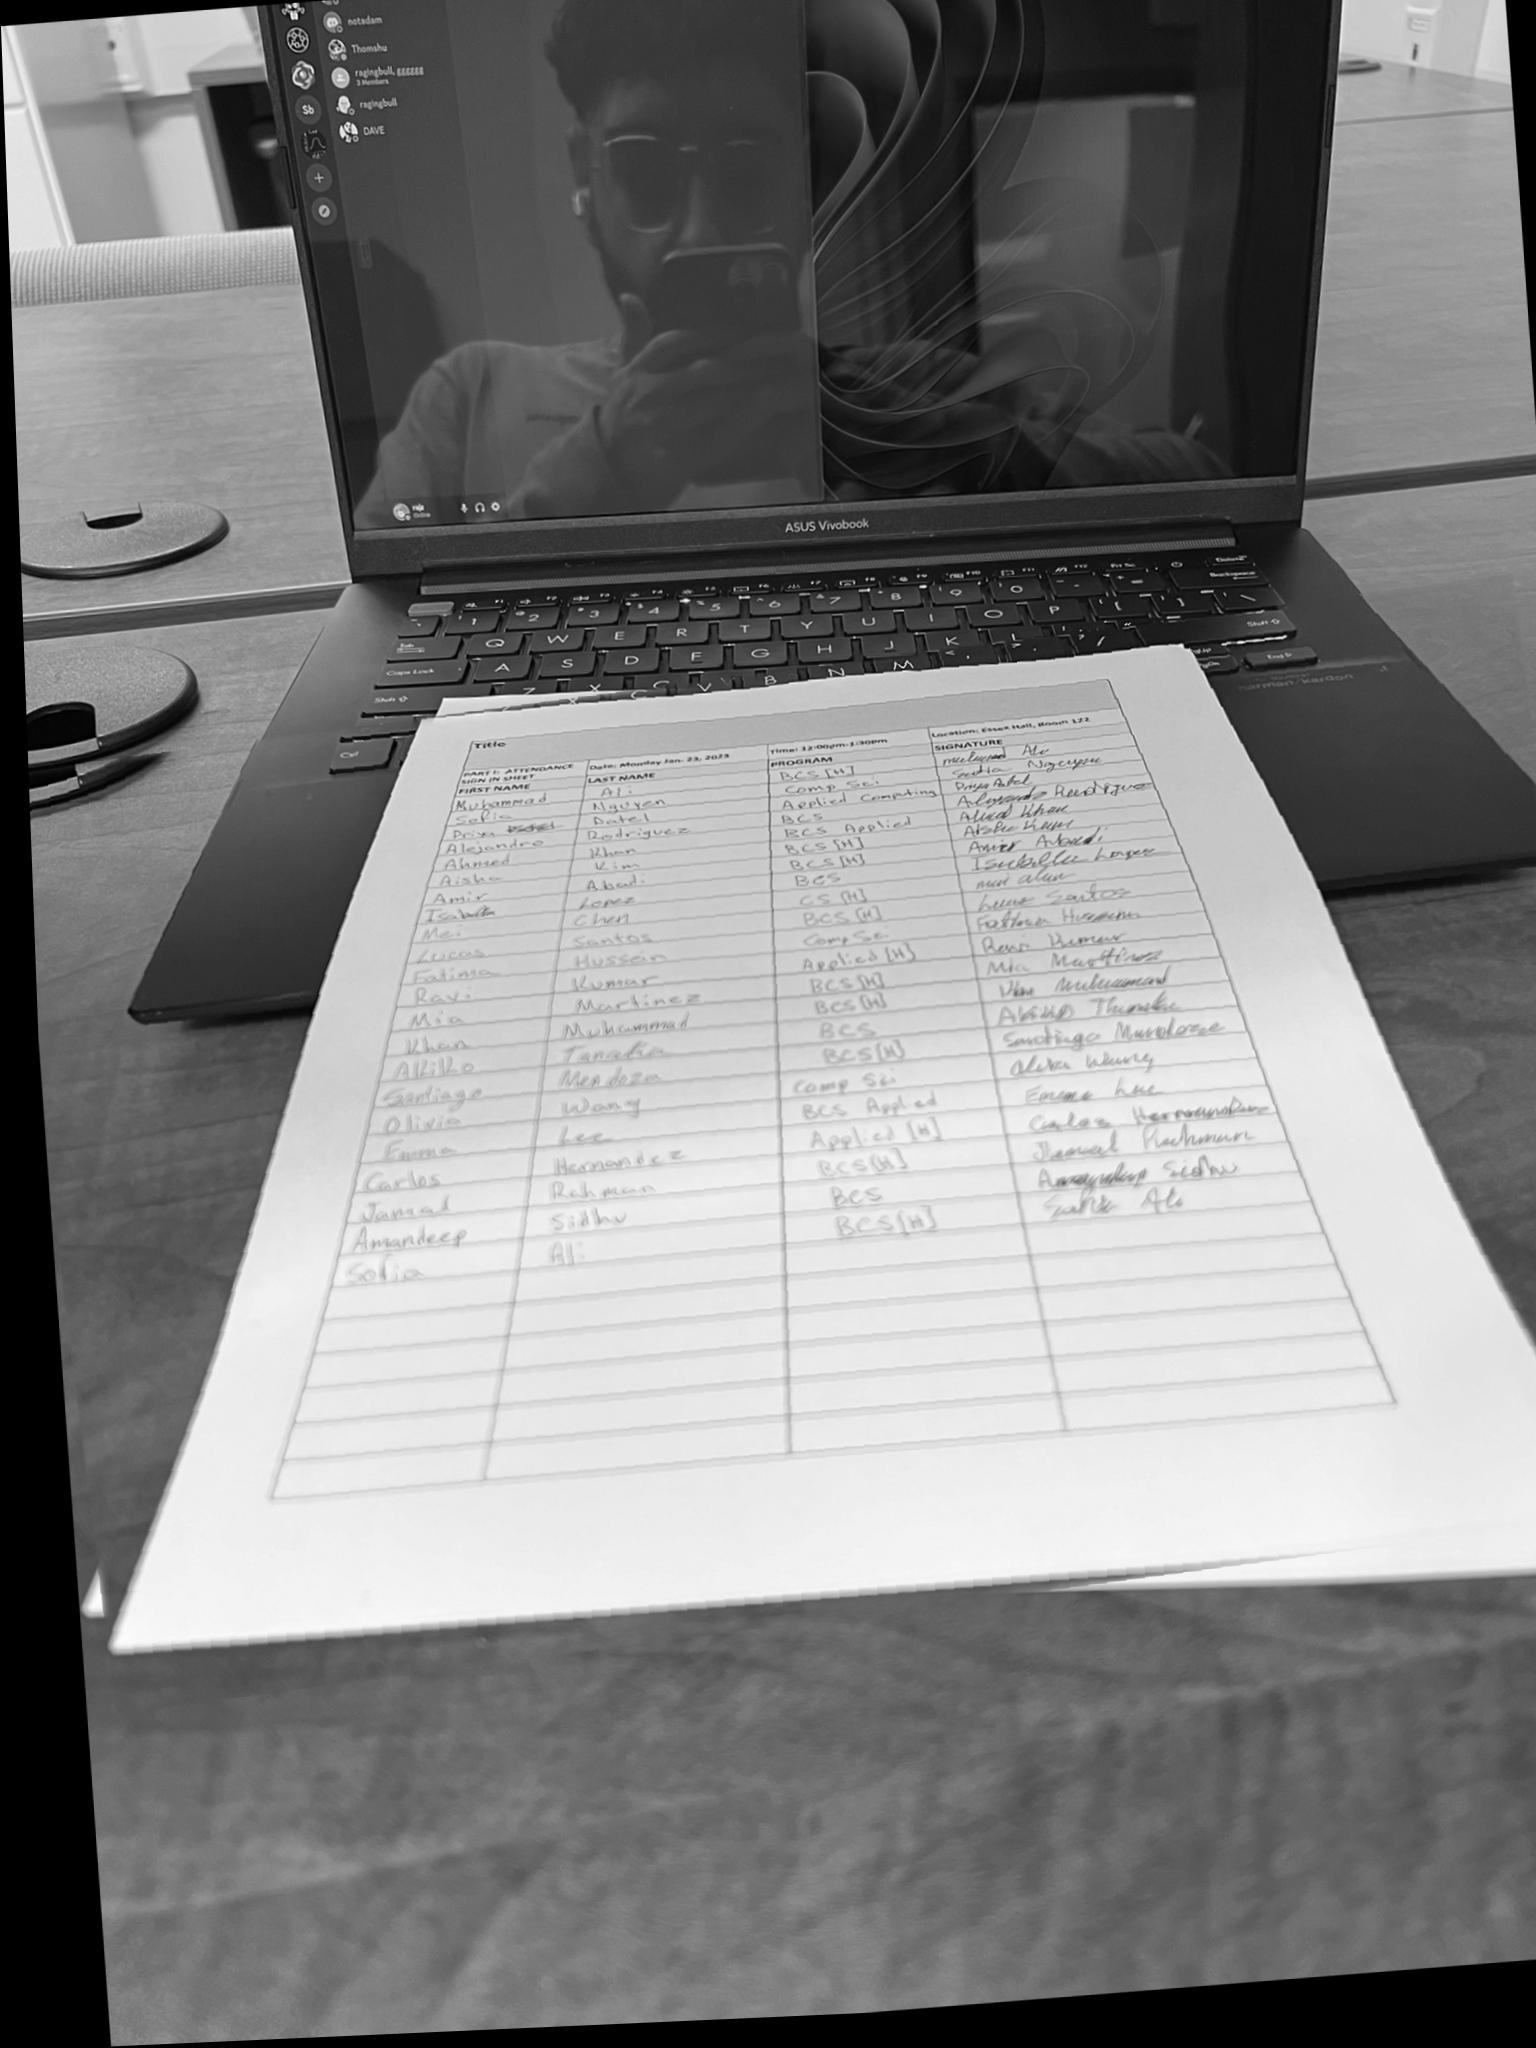 notadam
Thomshu
ragingbull, gggggg
3 Members
Sb
ragingbull
DAVE
raja
Online
ASUS Vivobook
Q W E R T Y U I O P
Caps Lock A S D F G H J K L
Shift Z X C V B N M
Ctrl
Delete
Backspace
Shift
End
harman/kardon
Title
PART I: ATTENDANCE SIGN IN SHEET Date: Monday Jan. 23, 2023 Time: 12:00pm-1:30pm Location: Essex Hall, Room 122
FIRST NAME LAST NAME PROGRAM SIGNATURE
Muhammad Ali BCS [H] Ali
Sofia Nguyen Comp Sci Sofia Nguyen
Priya Patel Applied Computing Priya Patel
Alejandro Rodriguez BCS Alejandro Rodriguez
Ahmed Khan BCS Applied Ahmed Khan
Aisha Kim BCS [H] Aisha Kim
Amir Abadi BCS [H] Amir Abadi
Isabella Lopez BCS Isabella Lopez
Mei Chen CS [H] mei
Lucas Santos BCS [H] Lucas Santos
Fatima Hussein Comp Sci Fatima Hussein
Ravi Kumar Applied [H] Ravi Kumar
Mia Martinez BCS [H] Mia Martinez
Khan Muhammad BCS [H] Khan Muhammad
Akiko Tanaka BCS Akiko
Santiago Mendoza BCS [H] Santiago Mendoza
Olivia Wang Comp Sci Olivia Wang
Emma Lee BCS Applied Emma Lee
Carlos Hernandez Applied [H] Carlos Hernandez
Jamal Rahman BCS [H] Jamal Rahman
Amandeep Sidhu BCS Amandeep Sidhu
Sofia Ali BCS [H] Sofia Ali